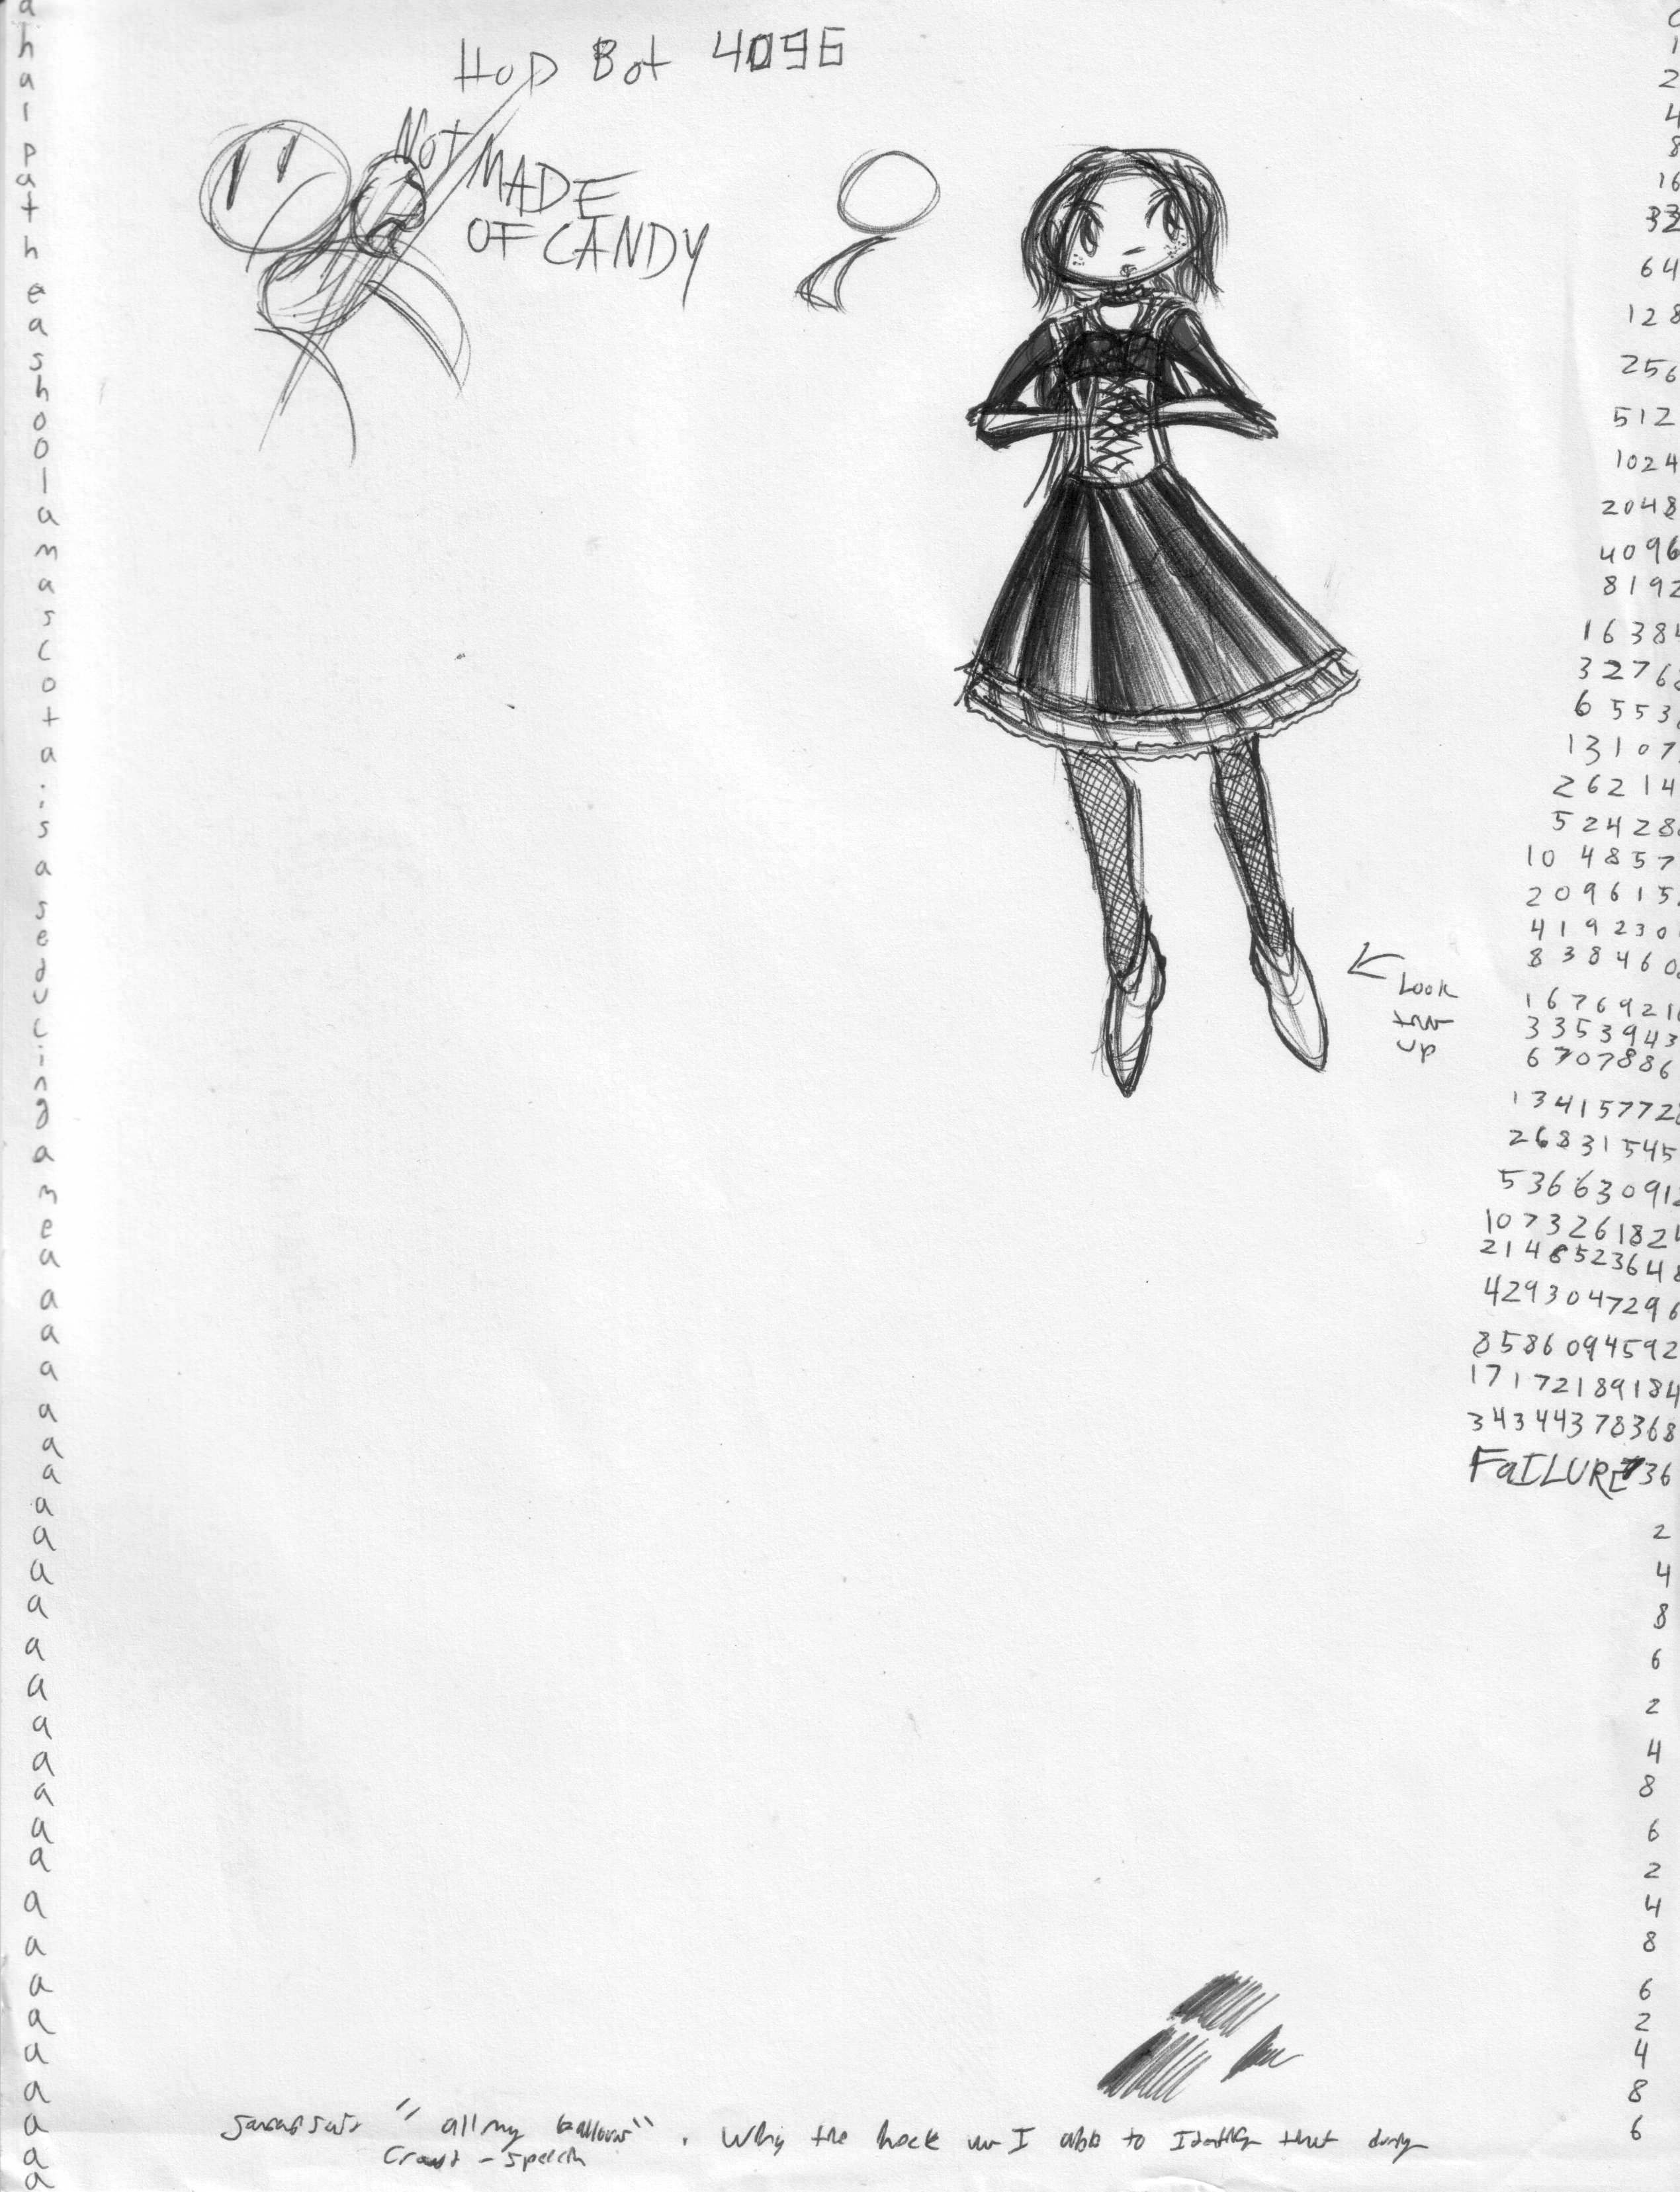 HOD Bot 4096
NOT MADE
OF CANDY
a
h
a
l
p
a
t
h
e
a
s
h
o
o
l
a
m
a
s
c
o
t
a
i
s
a
s
e
d
u
c
i
n
g
a
m
e
a
a
a
a
a
a
a
a
a
a
a
a
a
a
a
a
a
a
a
a
a
a
a
a
a
a
a
Look
up
1
2
4
8
16
32
64
128
256
512
1024
2048
4096
8192
16384
32768
6553
13107
26214
52428
104857
209615
419230
838460
1676921
3353943
6707886
13415772
26831545
53663091
107326182
2148523648
4293047296
8586094592
17172189184
34344378368
FaILURE 36
2
4
8
6
2
4
8
6
2
4
8
6
2
4
8
6
"all my balloons". Why the heck am I able to Identify that
Crowd - Speech